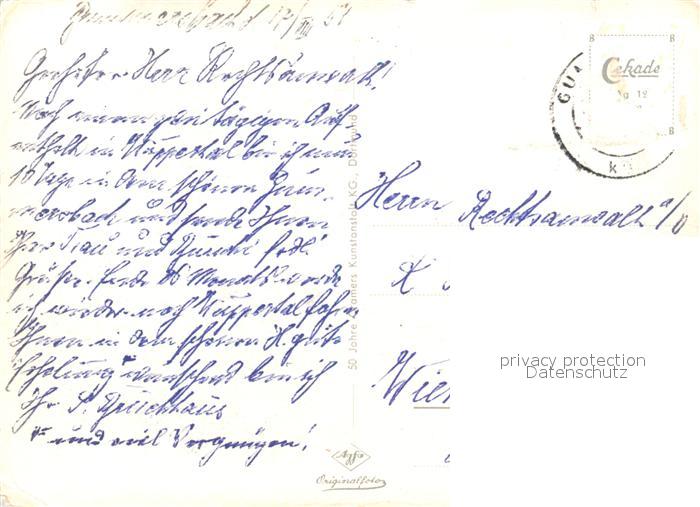 Geehrter Herr Rechtsanwalt!
Nach einem zweitägigen Auf-
enthalt in Wuppertal bin ich nun
10 Tage in dem schönen Gum-
mersbach und sende Ihnen
Ihrer Frau und
Grüße. Ende ds Monats werde
ich wieder nach Wuppertal fahren
Ihnen in dem schönen H. gute
Erholung wünschend bin ich
Ihr
+ und viel Vergnügen!
50 Jahre Cramers Kunstanstalt KG., Dortmund
Agfa
Originalfoto
8 8
Cekade
8
GU
Herrn Rechtsanwalt a/D
Wie
privacy protection
Datenschutz